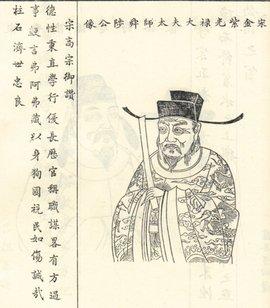 宋金紫光祿大夫太師舜陟公像
宋高宗御讚
德性秉直學行優長歷官稱職謀畧有方遇
事敢言弗阿弗藏以身狥國視民如傷誠哉
柱石濟世忠良